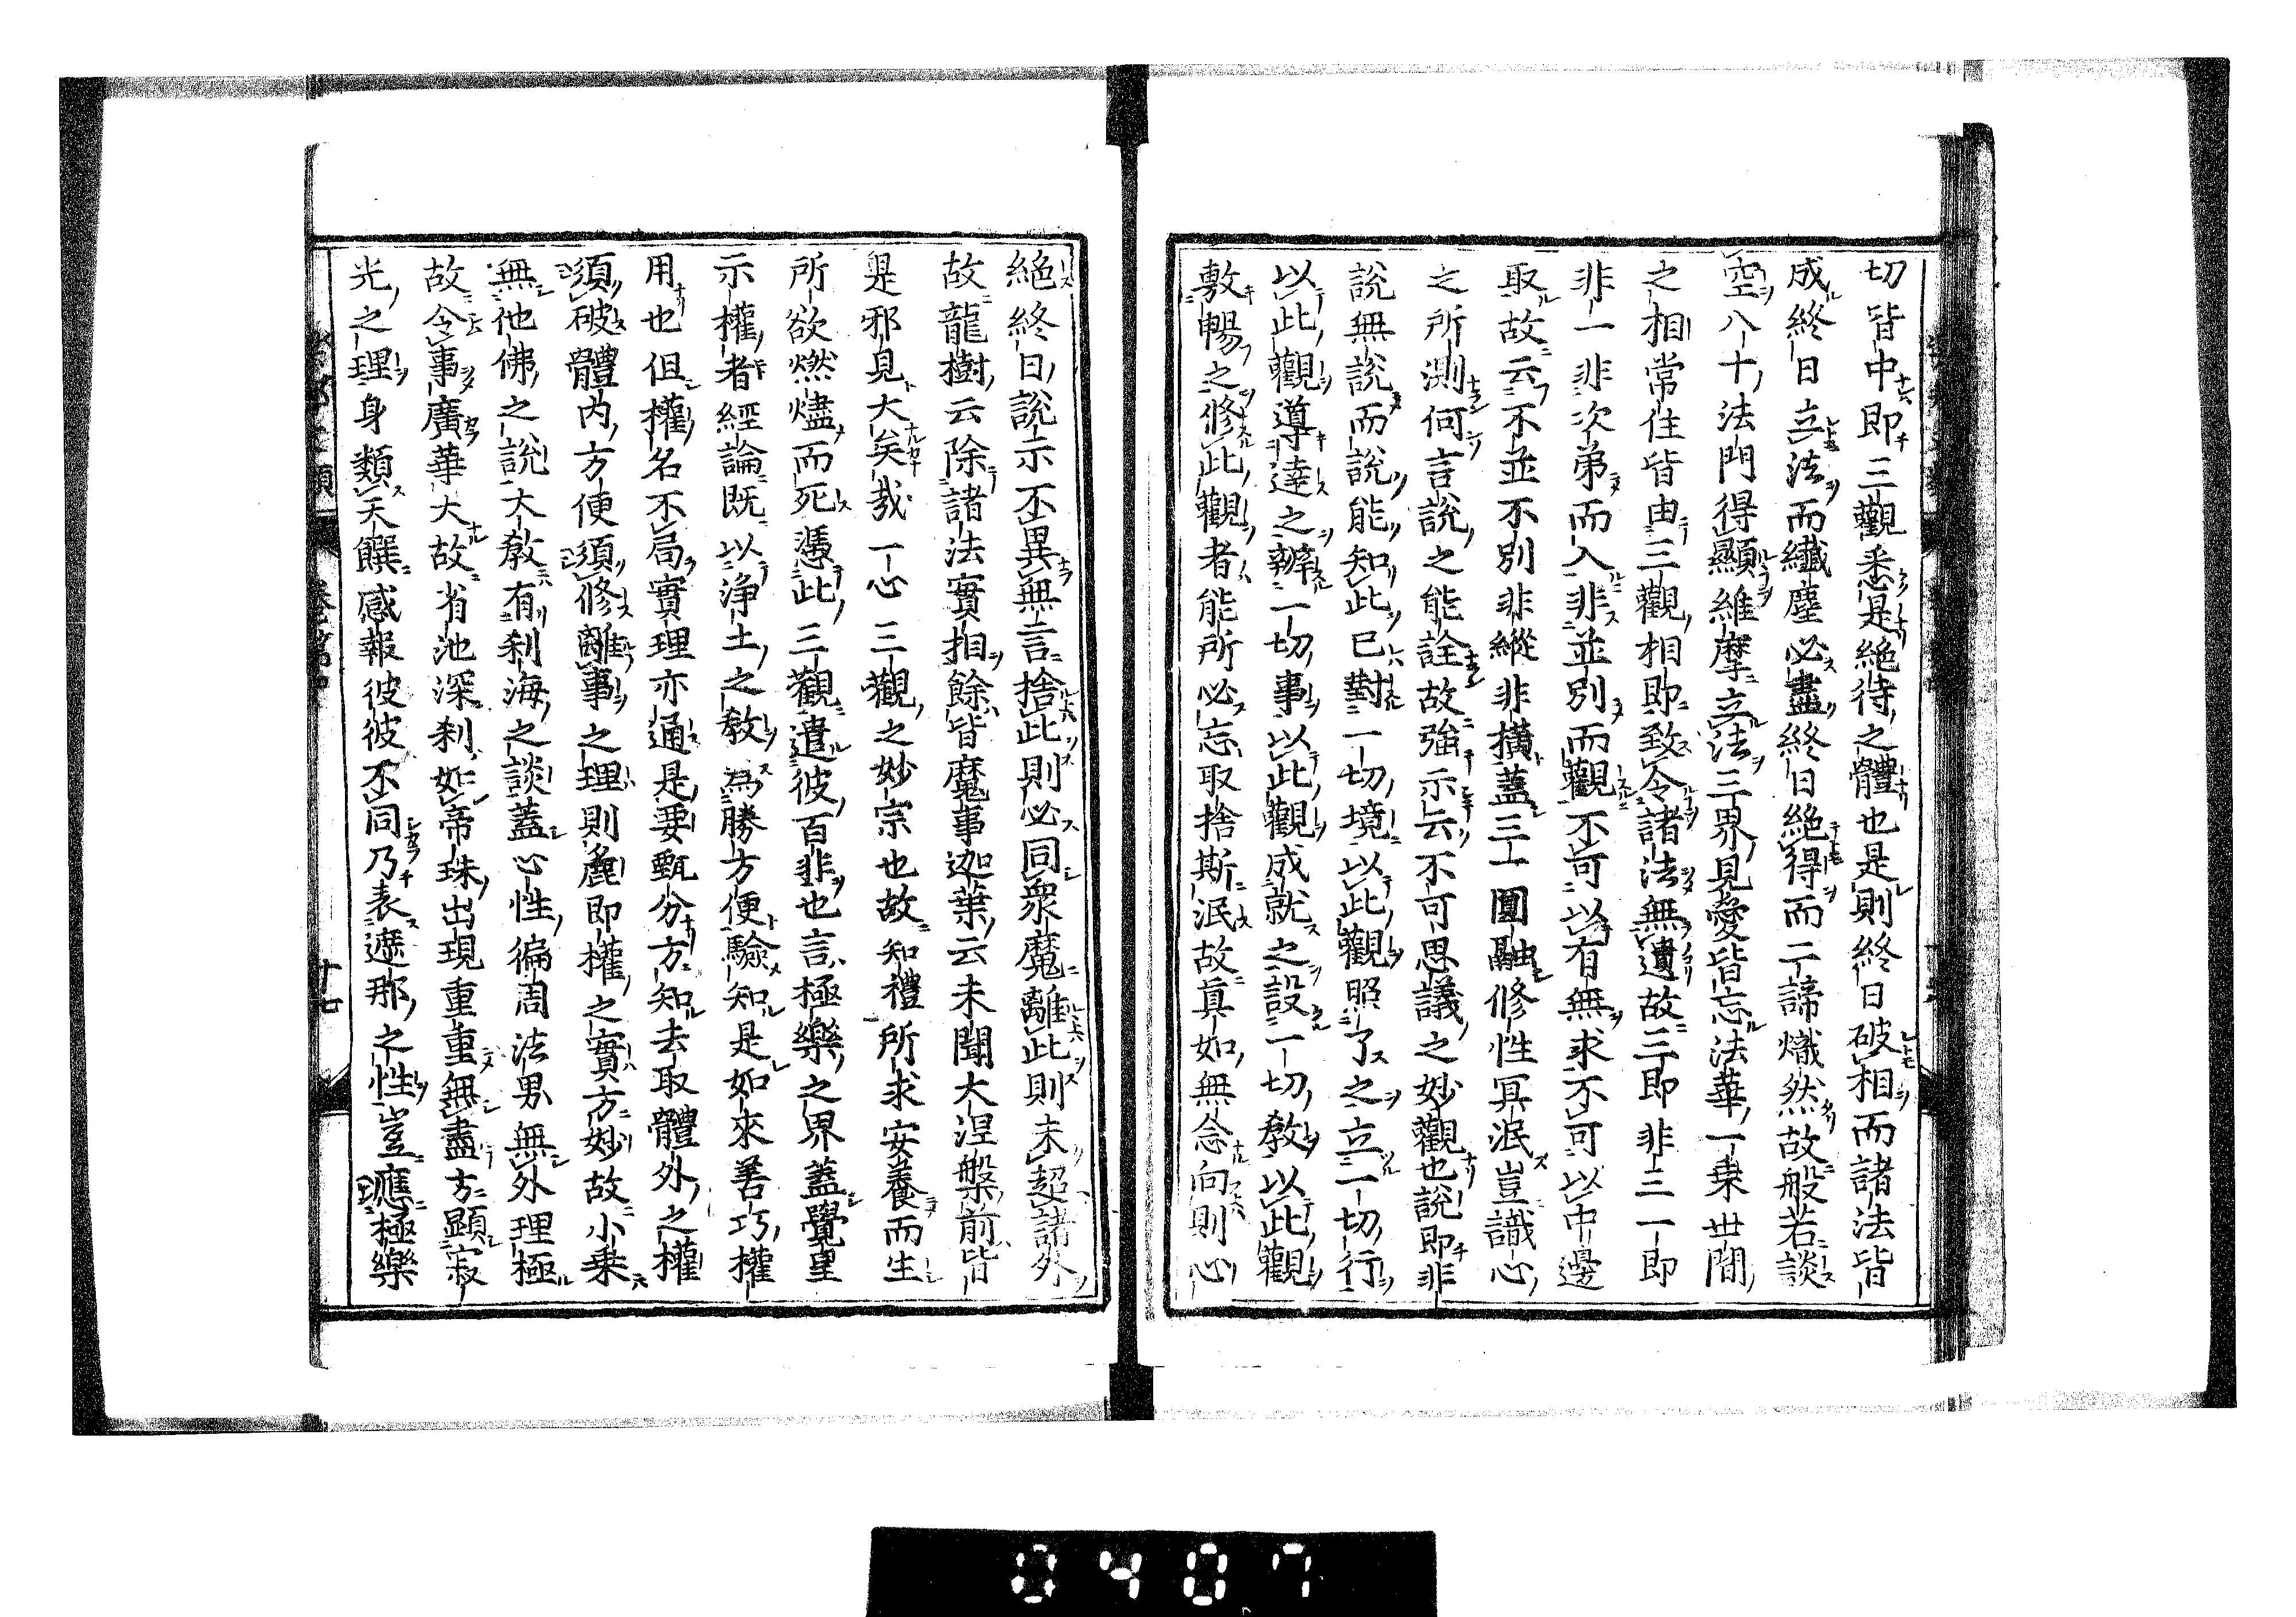 切皆中即三觀悉是絶待之體也是則終日破相而諸法皆
成終日立法而纎塵必盡終日絶得而二諦熾然故般若談
空八十法門得顯維摩立法三界見愛皆忘法華一乗世間
之相常住皆由三觀相即致令諸法無遺故三即非三一即
非一非次第而入非並別而觀不可以有無求不可以中邊
取故云不並不別非縱非横蓋三一圓融修性冥泯豈識心
之所測何言說之能詮故強示云不可思議之妙觀也說即非
說無說而說能知此已對一切境以此觀照了之立一切行
以此觀導達之辦一切事以此觀成就之設一切教以此觀
敷暢之修此觀者能所必忘取捨斯泯故真如無念向則心
絶終日說示不異無言捨此則必同衆魔離此則未超諸外
故龍樹云除諸法實相餘皆魔事迦葉云未聞大涅槃前皆
是邪見大矣哉一心三觀之妙宗也故知禮所求安養而生
所欲燃燼而死憑此三觀遣彼百非也言極樂之界蓋覺皇
示權者經論既以浄土之教為勝方便驗知是如來善巧權
用也但權名不局實理亦通是要甄分方知去取體外之權
須破體内方便須修離事之理則麁即權之實方妙故小乗
無他佛之說大教有刹海之談蓋心性徧周法界無外理極
故令事廣華大故省池深刹如帝珠出現重重無盡方顯寂
光之理身類天饌感報彼彼不同乃表遮那之性豈應極樂
十七
0407